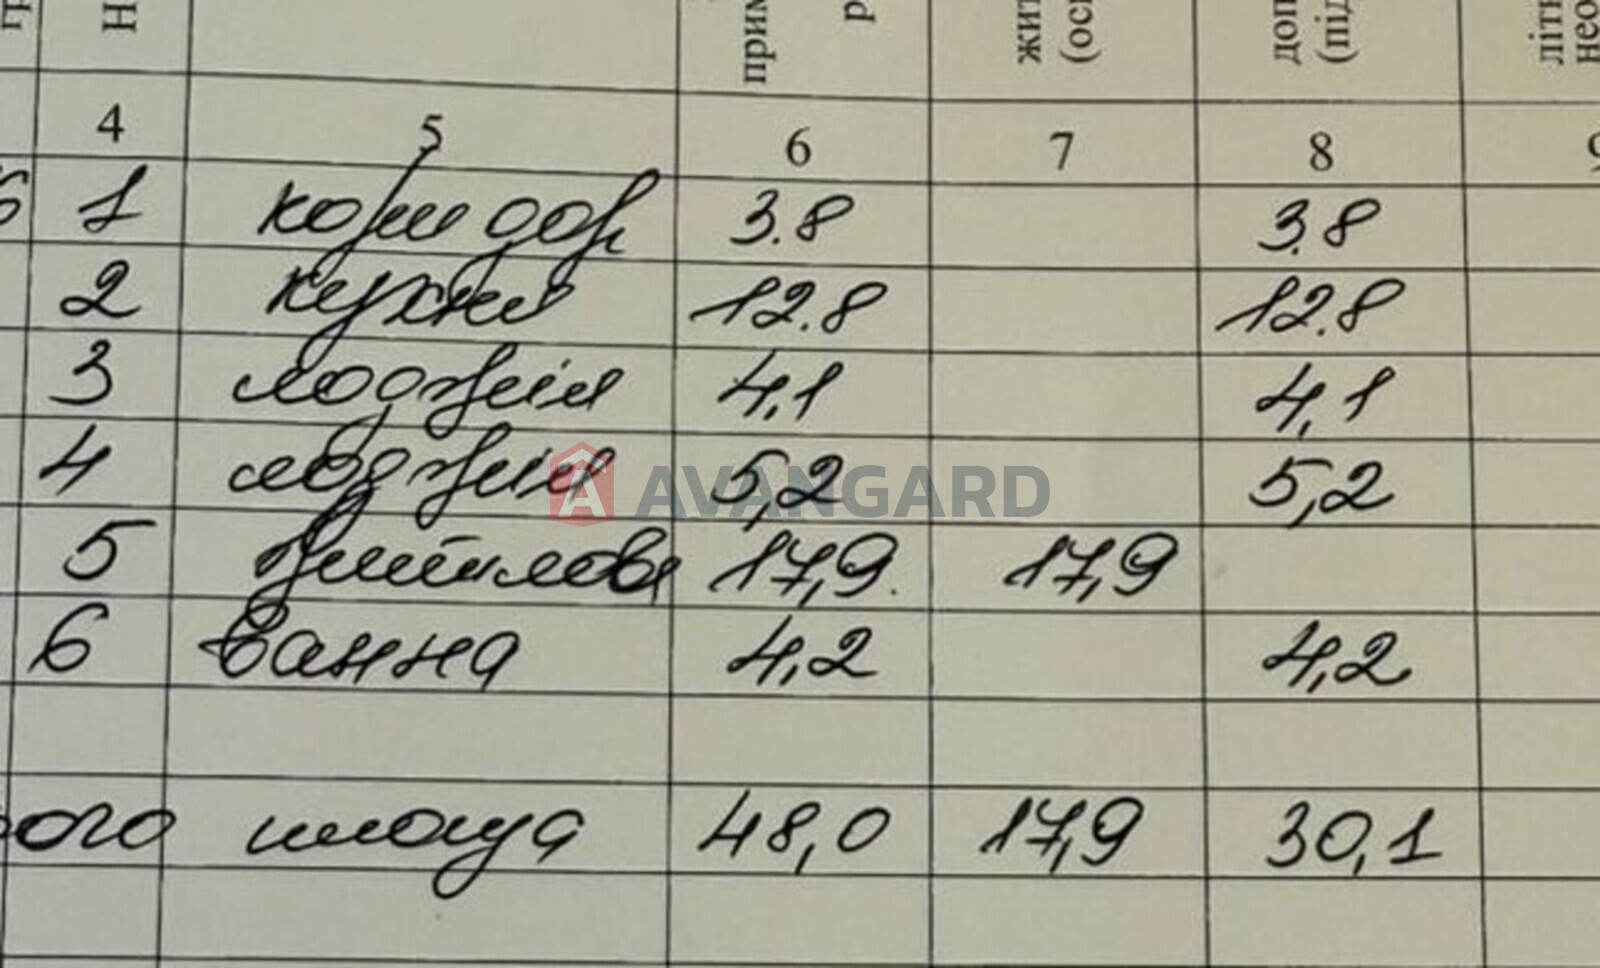 Н прим р жит (осн доп (під літн нео
4 5 6 7 8 9
6 1 коридор 3.8 3.8
2 кухня 12.8 12.8
3 лоджія 4,1 4,1
4 лоджія 5,2 5,2
AVANGARD
5 житлова 17,9 17,9
6 ванна 4,2 4,2
ього площа 48,0 17,9 30,1